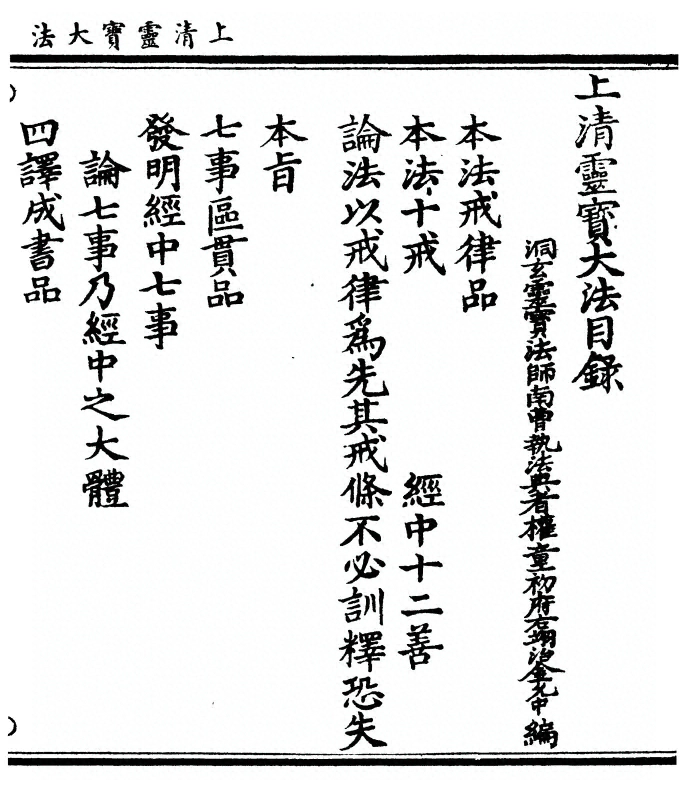 上清靈寶大法
上清靈寶大法目録
洞玄靈寶法師南曹執法典者權童初府右翊治金允中編
本法戒律品
本法十戒　經中十二善
論法以戒律為先其戒條不必訓釋恐失
本旨
七事區貫品
發明經中七事
論七事乃經中之大體
四譯成書品